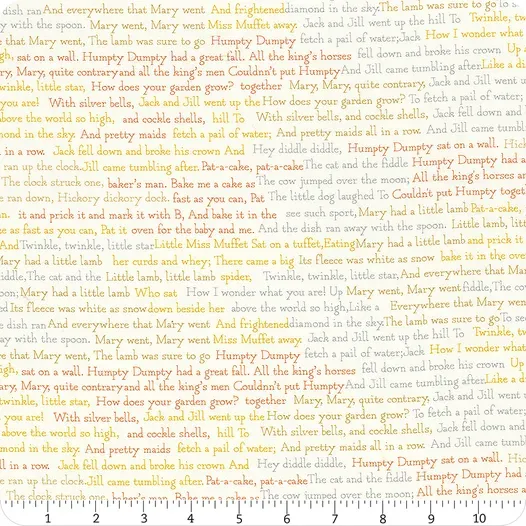 dish ran And everywhere that Mary went And frightened diamond in the sky. The lamb was sure to go
Mary went, Mary went Miss Muffet away. Jack and Jill went up the hill To Twinkle, tw
e that Mary went, The lamb was sure to go Humpty Dumpty fetch a pail of water; Jack How I wonder what
high, sat on a wall. Humpty Dumpty had a great fall. All the king's horses fell down and broke his crown Up
ry, Mary, quite contrary and all the king's men Couldn't put Humpty And Jill came tumbling after. Like a di
winkle, little star, How does your garden grow? together Mary, Mary, quite contrary, Jack and Jill went
you are! With silver bells, Jack and Jill went up the How does your garden grow? To fetch a pail of water;
above the world so high, and cockle shells, hill To With silver bells, and cockle shells, Jack fell down and
mond in the sky. And pretty maids fetch a pail of water; And pretty maids all in a row. And Jill came tumbl
in a row. Jack fell down and broke his crown And Hey diddle diddle, Humpty Dumpty sat on a wall. Hick
ran up the clock. Jill came tumbling after. Pat-a-cake, pat-a-cake The cat and the fiddle Humpty Dumpty had a
The clock struck one, baker's man. Bake me a cake as The cow jumped over the moon; All the king's horses an
ran down, Hickory dickory dock. fast as you can, Pat The little dog laughed To Couldn't put Humpty toget
it and prick it and mark it with B, And bake it in the see such sport, Mary had a little lamb Pat-a-cake,
e as fast as you can, Pat it oven for the baby and me. And the dish ran away with the spoon. Little lamb, litt
And Twinkle, twinkle, little star Little Miss Muffet Sat on a tuffet, Eating Mary had a little lamb and prick it
Mary had a little lamb her curds and whey; There came a big Its fleece was white as snow bake it in the ove
diddle, The cat and the Little lamb, little lamb spider, Twinkle, twinkle, little star, And everywhere that Ma
oon; Mary had a little lamb Who sat How I wonder what you are! Up Mary went, Mary went fiddle, The co
d Its fleece was white as snow down beside her above the world so high, Like a Everywhere that Mary wen
dish ran And everywhere that Mary went And frightened diamond in the sky. The lamb was sure to go To se
ay with the spoon. Mary went, Mary went Miss Muffet away. Jack and Jill went up the hill To Twinkle, tw
e that Mary went, The lamb was sure to go Humpty Dumpty fetch a pail of water; Jack How I wonder what
high, sat on a wall. Humpty Dumpty had a great fall. All the king's horses fell down and broke his crown Up
ary, Mary, quite contrary and all the king's men Couldn't put Humpty And Jill came tumbling after. Like a d
twinkle, little star, How does your garden grow? together Mary, Mary, quite contrary, Jack and Jill went
you are! With silver bells, Jack and Jill went up the How does your garden grow? To fetch a pail of water;
above the world so high, and cockle shells, hill To With silver bells, and cockle shells, Jack fell down and
mond in the sky. And pretty maids fetch a pail of water; And pretty maids all in a row. And Jill came tumb
ll in a row. Jack fell down and broke his crown And Hey diddle diddle, Humpty Dumpty sat on a wall. Hick
ran up the clock. Jill came tumbling after. Pat-a-cake, pat-a-cake The cat and the fiddle Humpty Dumpty had
The clock struck one, baker's man. Bake me a cake as The cow jumped over the moon; All the king's horses a
1 2 3 4 5 6 7 8 9 10